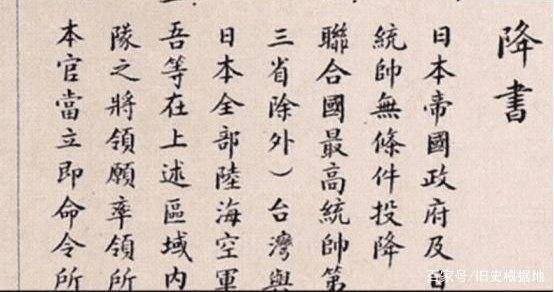 降書
日本帝國政府及日
統帥無條件投降
聯合國最高統帥第
三省除外）台灣與
日本全部陸海空軍
吾等在上述區域內
隊之將領願率領所
本官當立即命令所
百家号/旧史根据地